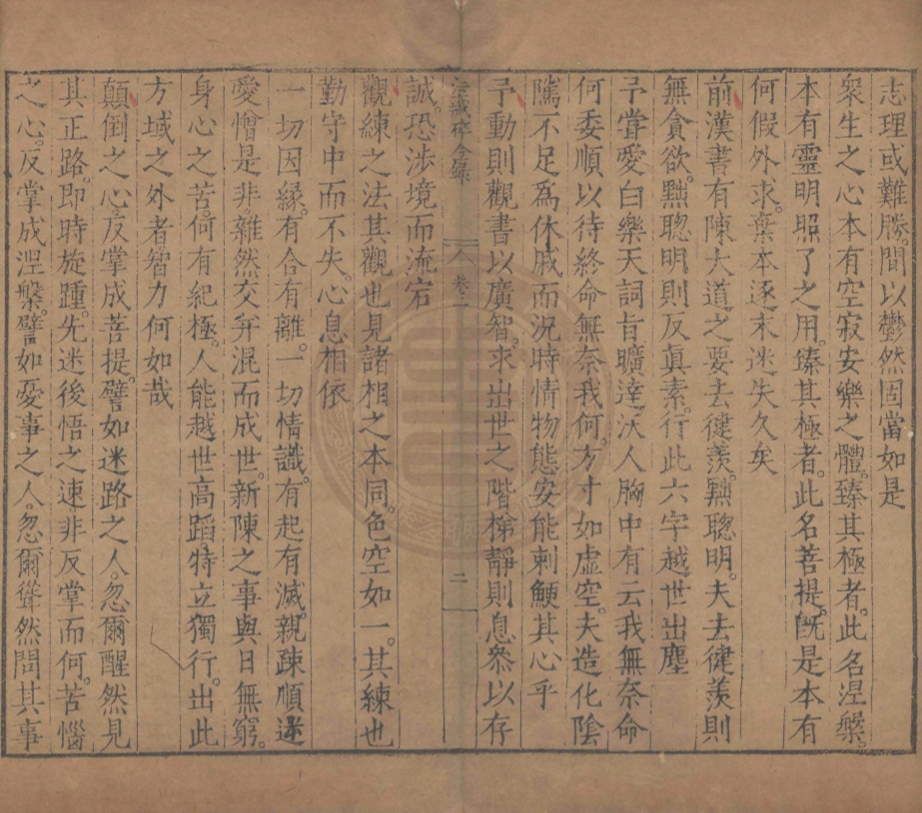 志理或難勝。間以鬱然固當如是
衆生之心本有空寂安樂之體。臻其極者。此名涅槃。
本有靈明照了之用。臻其極者。此名菩提。旣是本有
何假外求。棄本逐末迷失久矣
前漢書有陳大道之要去徤羨。黜聰明。夫去徤羨則
無貪欲。黜聰明則反眞素。行此六字越世出塵
予嘗愛白樂天詞旨曠達沃人胸中有云我無奈命
何委順以待終命無奈我何。方寸如虛空。夫造化陰
隲不足爲休戚而況時情物態安能刺鯁其心乎
予動則觀書以廣智。求出世之階梯靜則息粲以存
法藏碎金錄 卷二 二
誠。恐涉境而流宕
觀練之法其觀也見諸相之本同。色空如一。其練也
勤守中而不失。心息相依
一切因緣。有合有離。一切情識。有起有滅。親疎順逆
愛憎是非。雜然交弁混而成世。新陳之事與日無窮。
身心之苦。何有紀極。人能越世高蹈。特立獨行。出此
方域之外者智力何如哉
顛倒之心。反掌成菩提。譬如迷路之人。忽爾醒然見
其正路。即時旋踵。先迷後悟之速非反掌而何。苦惱
之心。反掌成涅槃。譬如憂事之人。忽爾聳然問其事